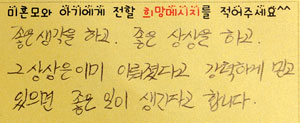 미혼모와 아기에게 전할 희망메시지를 적어주세요^^
좋은 생각을 하고. 좋은 상상을 하고.
그 상상은 이미 이뤄졌다고 강력하게 믿고
있으면 좋은 일이 생긴다고 합니다.